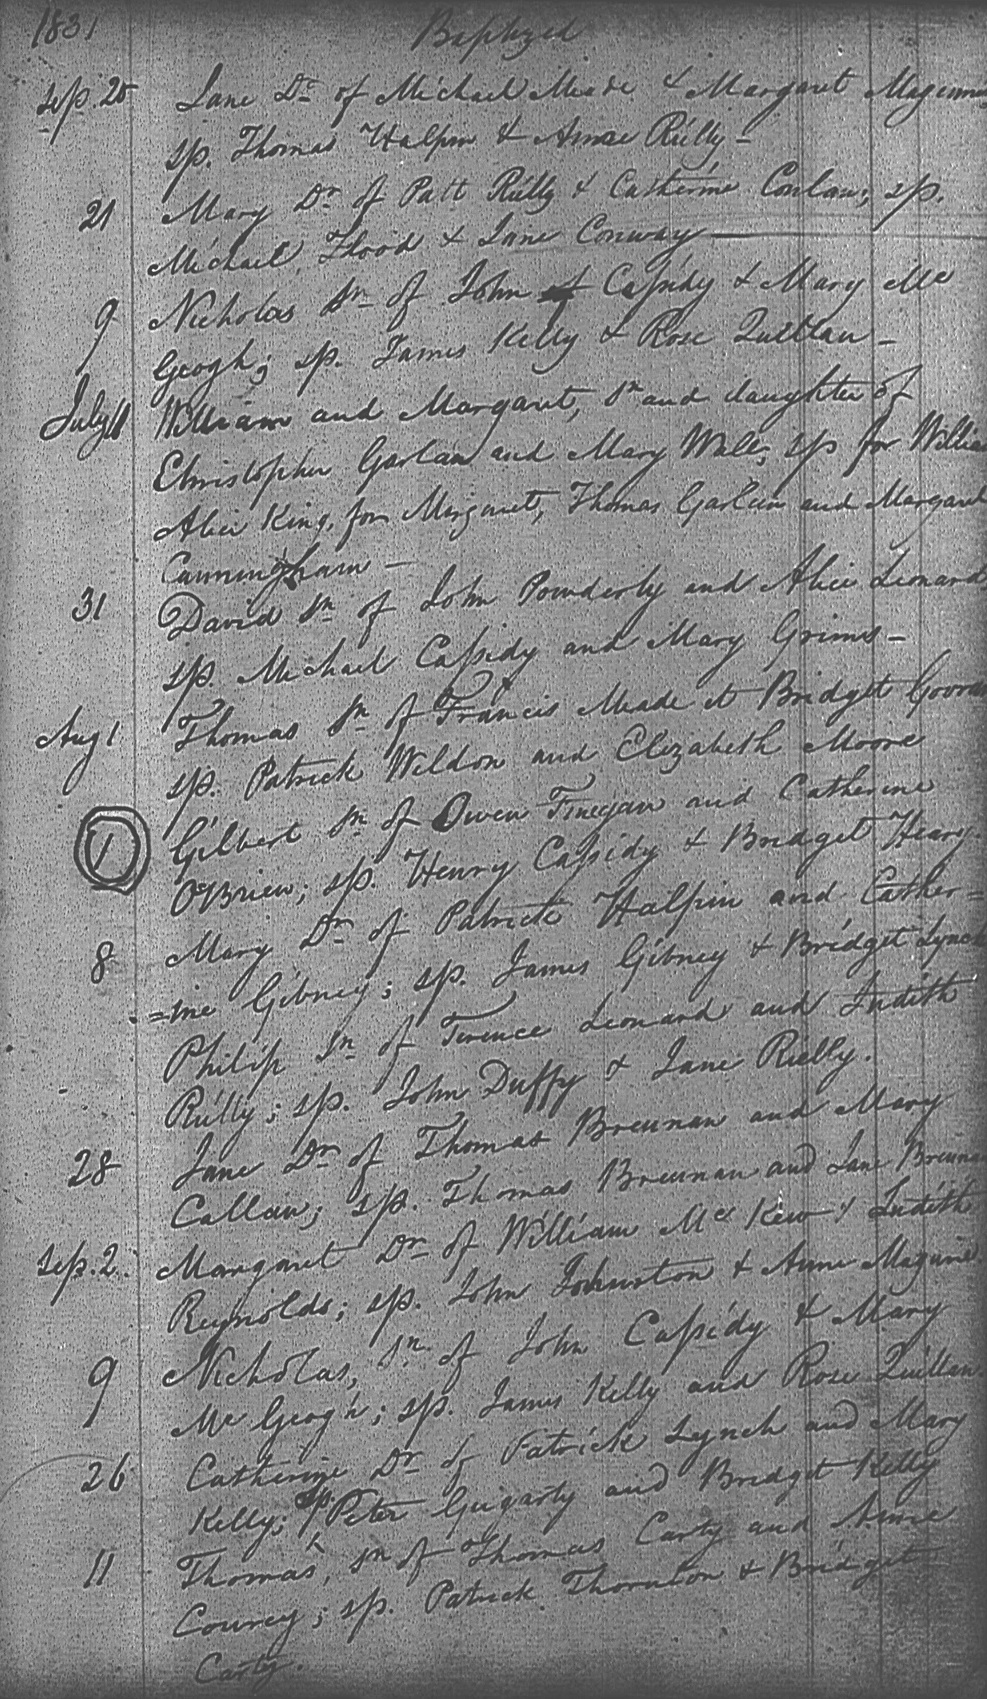 1831 Baptized
Sep. 20 Jane Dr of Michael Meade & Margaret Maginnis
sp. Thomas Halpin & Anne Rielly –
21 Mary Dr of Patt Rielly & Catherine Conlan; sp.
Michael Flood & Jane Conway
9 Nicholas Sn of John Cassidy & Mary Mc
Geogh; sp. James Kelly & Rose Quillan –
July 11 William and Margaret, Sn and daughter of
Christopher Garlan and Mary Wall; sp for William
Alice King, for Margaret, Thomas Garlan and Margaret
Cunningham –
31 David Sn of John Pounderly and Alice Leonard
sp. Michael Cassidy and Mary Grimes –
Aug 1 Thomas Sn of Francis Meade et Bridget
sp. Patrick Weldon and Elizabeth Moore
1 Gilbert Sn of Owen Finegan and Catherine
O'Brien; sp. Henry Cassidy & Bridget Heary.
8 Mary Dr of Patrick Halpin and Cather=
=ine Gibney; sp. James Gibney & Bridget Lynch
Philip Sn of Terence Leonard and Judith
Rielly; sp. John Duffy & Jane Rielly.
28 Jane Dr of Thomas Brennan and Mary
Callan; sp. Thomas Brennan and Jane Brennan
Sep. 2. Margaret Dr of William Mc Kew & Judith
Reynolds; sp. John Johnston & Anne Maguire
9 Nicholas, Sn of John Cassidy & Mary
Mc Geogh; sp. James Kelly and Rose Quillan
26 Catherine Dr of Patrick Lynch and Mary
Kelly; sp. Peter Gugarty and Bridget Kelly
11 Thomas, Sn of Thomas Carty and Anne
Courcy; sp. Patrick Thornton & Bridget
Carty.